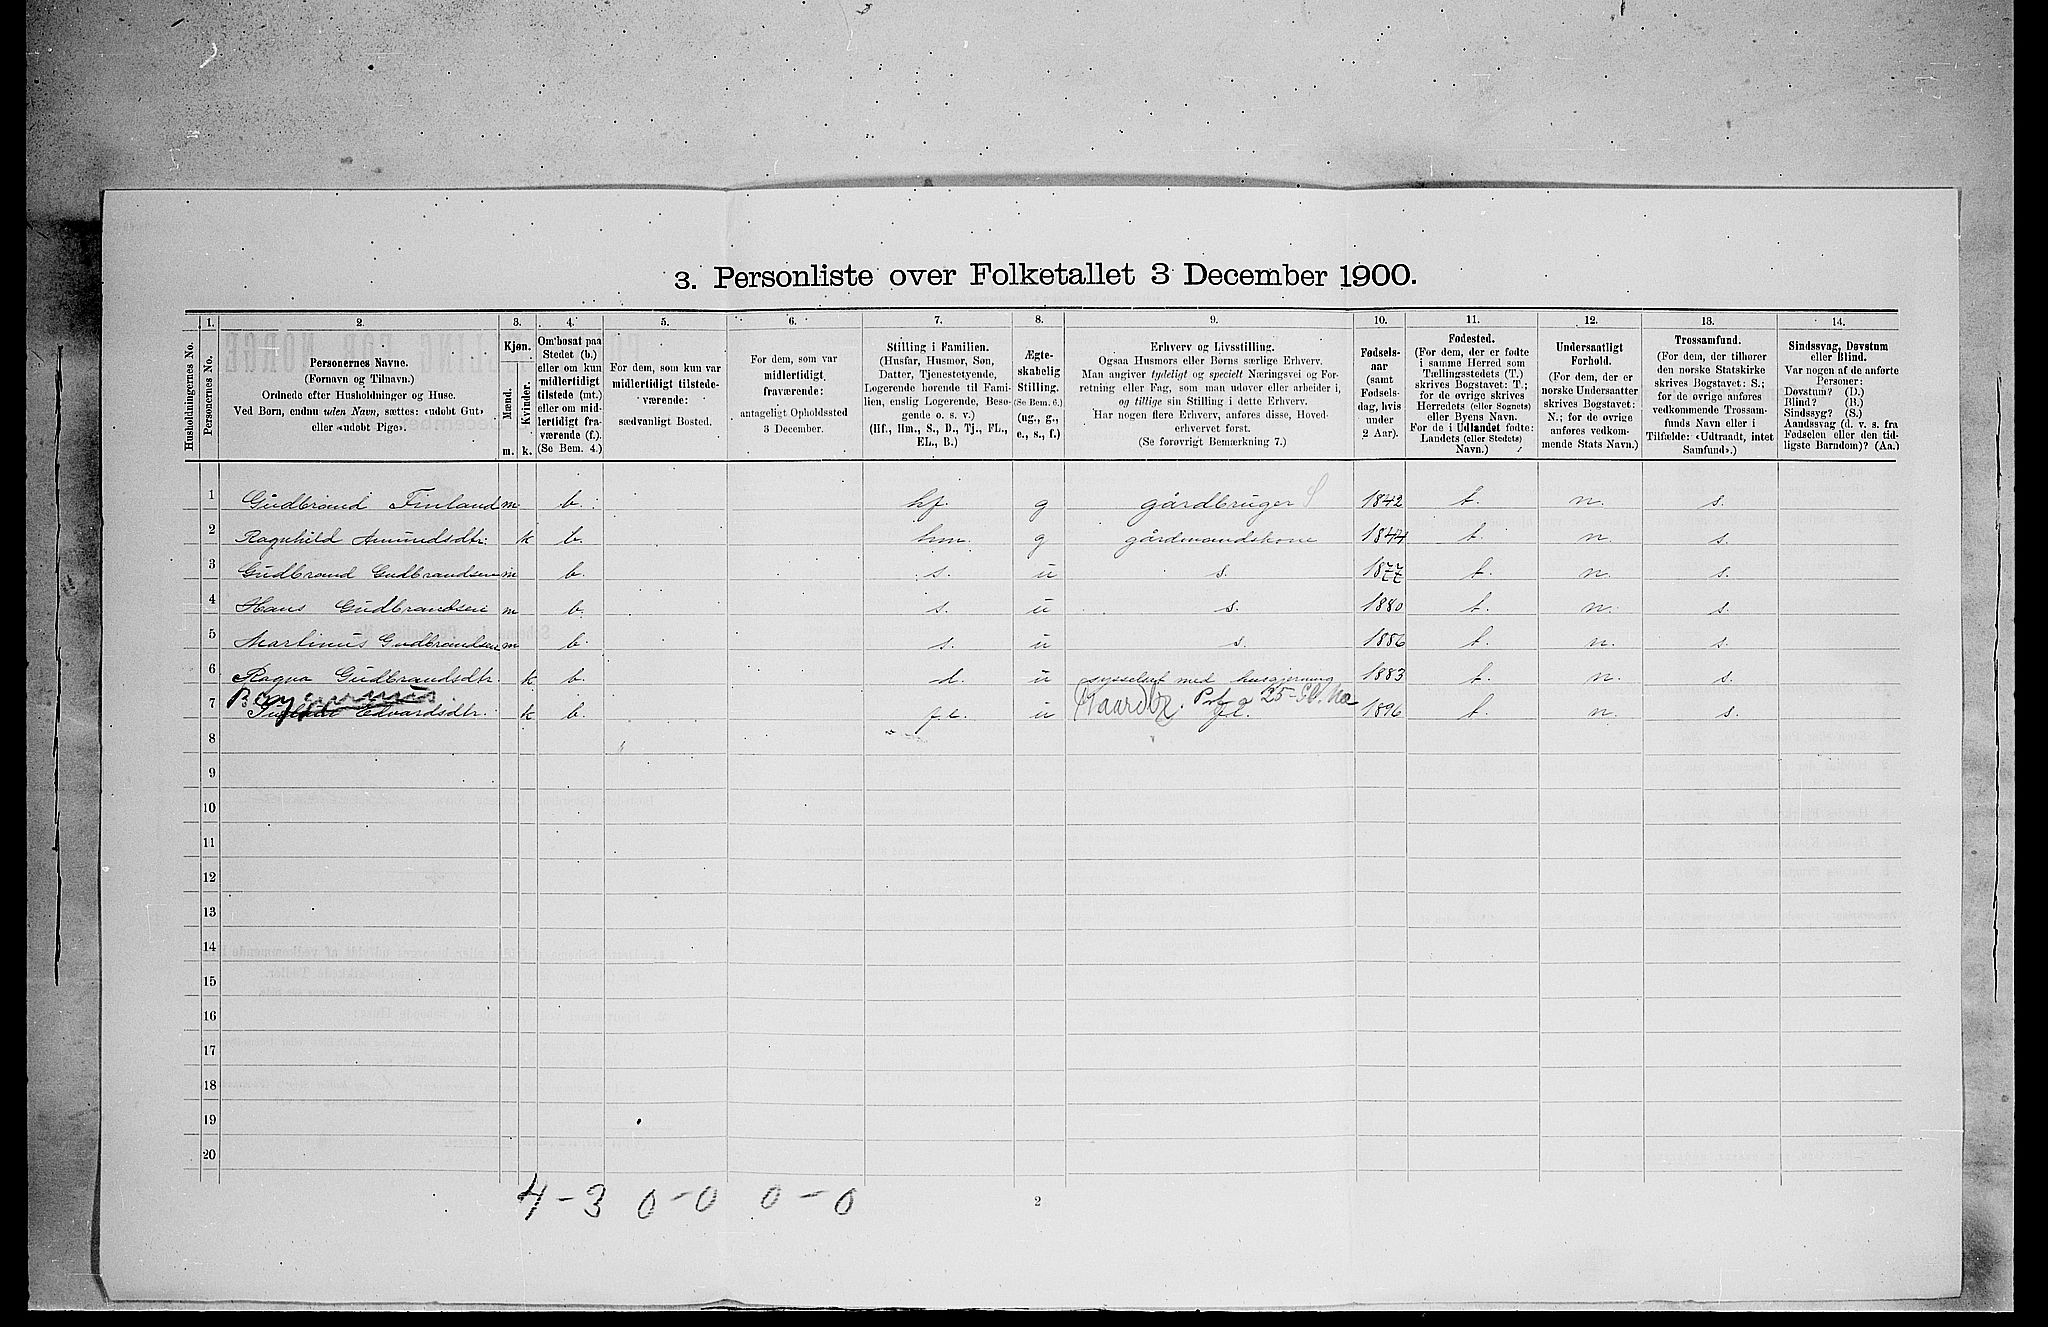 3. Personliste over Folketallet 3 December 1900.
Husholdningernes No.
1.
Personernes No.
2.
Personernes Navne.
(Fornavn og Tilnavn.)
Ordnede efter Husholdninger og Huse.
Ved Børn, endnu uden Navn, sættes: «udøbt Gut»
eller «udøbt Pige».
3.
Kjøn.
Mænd.
Kvinder.
m. k.
4.
Om bosat paa
Stedet (b.)
eller om kun
midlertidigt
tilstede (mt.)
eller om mid-
lertidigt fra-
værende (f.).
(Se Bem. 4.)
5.
For dem, som kun var
midlertidigt tilstede-
værende:
sædvanligt Bosted.
6.
For dem, som var
midlertidigt
fraværende:
antageligt Opholdssted
3 December.
7.
Stilling i Familien.
(Husfar, Husmor, Søn,
Datter, Tjenestetyende,
Logerende hørende til Fami-
lien, enslig Logerende, Besø-
gende o. s. v.)
(Hf., Hm., S., D., Tj., FL.,
EL., B.)
8.
Ægte-
skabelig
Stilling.
(Se Bem. 6.)
(ug., g.,
e., s., f.)
9.
Erhverv og Livsstilling.
Ogsaa Husmors eller Børns særlige Erhverv.
Man angiver tydeligt og specielt Næringsvei og For-
retning eller Fag, som man udøver eller arbeider i,
og tillige sin Stilling i dette Erhverv.
Har nogen flere Erhverv, anføres disse, Hoved-
erhvervet først.
(Se forøvrigt Bemærkning 7.)
10.
Fødsels-
aar
(samt
Fødsels-
dag, hvis
under
2 Aar).
11.
Fødested.
(For dem, der er fødte
i samme Herred som
Tællingsstedets (T.)
skrives Bogstavet: T.;
for de øvrige skrives
Herredets (eller Sognets)
eller Byens Navn.
For de i Udlandet fødte:
Landets (eller Stedets)
Navn.)
12.
Undersaatligt
Forhold.
(For dem, der er
norske Undersaatter
skrives Bogstavet:
N.; for de øvrige
anføres vedkom-
mende Stats Navn.)
13.
Trossamfund.
(For dem, der tilhører
den norske Statskirke
skrives Bogstavet: S.;
for de øvrige anføres
vedkommende Trossam-
funds Navn eller i
Tilfælde: «Udtraadt, intet
Samfund».)
14.
Sindssvag, Døvstum
eller Blind.
Var nogen af de anførte
Personer:
Døvstum? (D.)
Blind? (B.)
Sindssyg? (S.)
Aandssvag (d. v. s. fra
Fødselen eller den tid-
ligste Barndom)? (Aa.)
1 Gudbrand Finland m b. hf. g gårdbruger S 1842 t. n. s.
2 Ragnhild Amundsdtr. k b. hm. g gårdmandskone 1844 t. n. s.
3 Gudbrand Gudbrandsen m b. s. u s. 1877 t. n. s.
4 Hans Gudbrandsen m b. s. u s. 1880 t. n. s.
5 Martinus Gudbrandsen m b. s. u s. 1886 t. n. s.
6 Ragna Gudbrandsdtr. k b. d. u sysselsat med husgjerning 1883 t. n. s.
7 Edvardsdtr. k b. f.l. u fl. 1896 t. n. s.
8
9
10
11
12
13
14
15
16
17
18
19
20
4 - 3 0 - 0 0 - 0
2